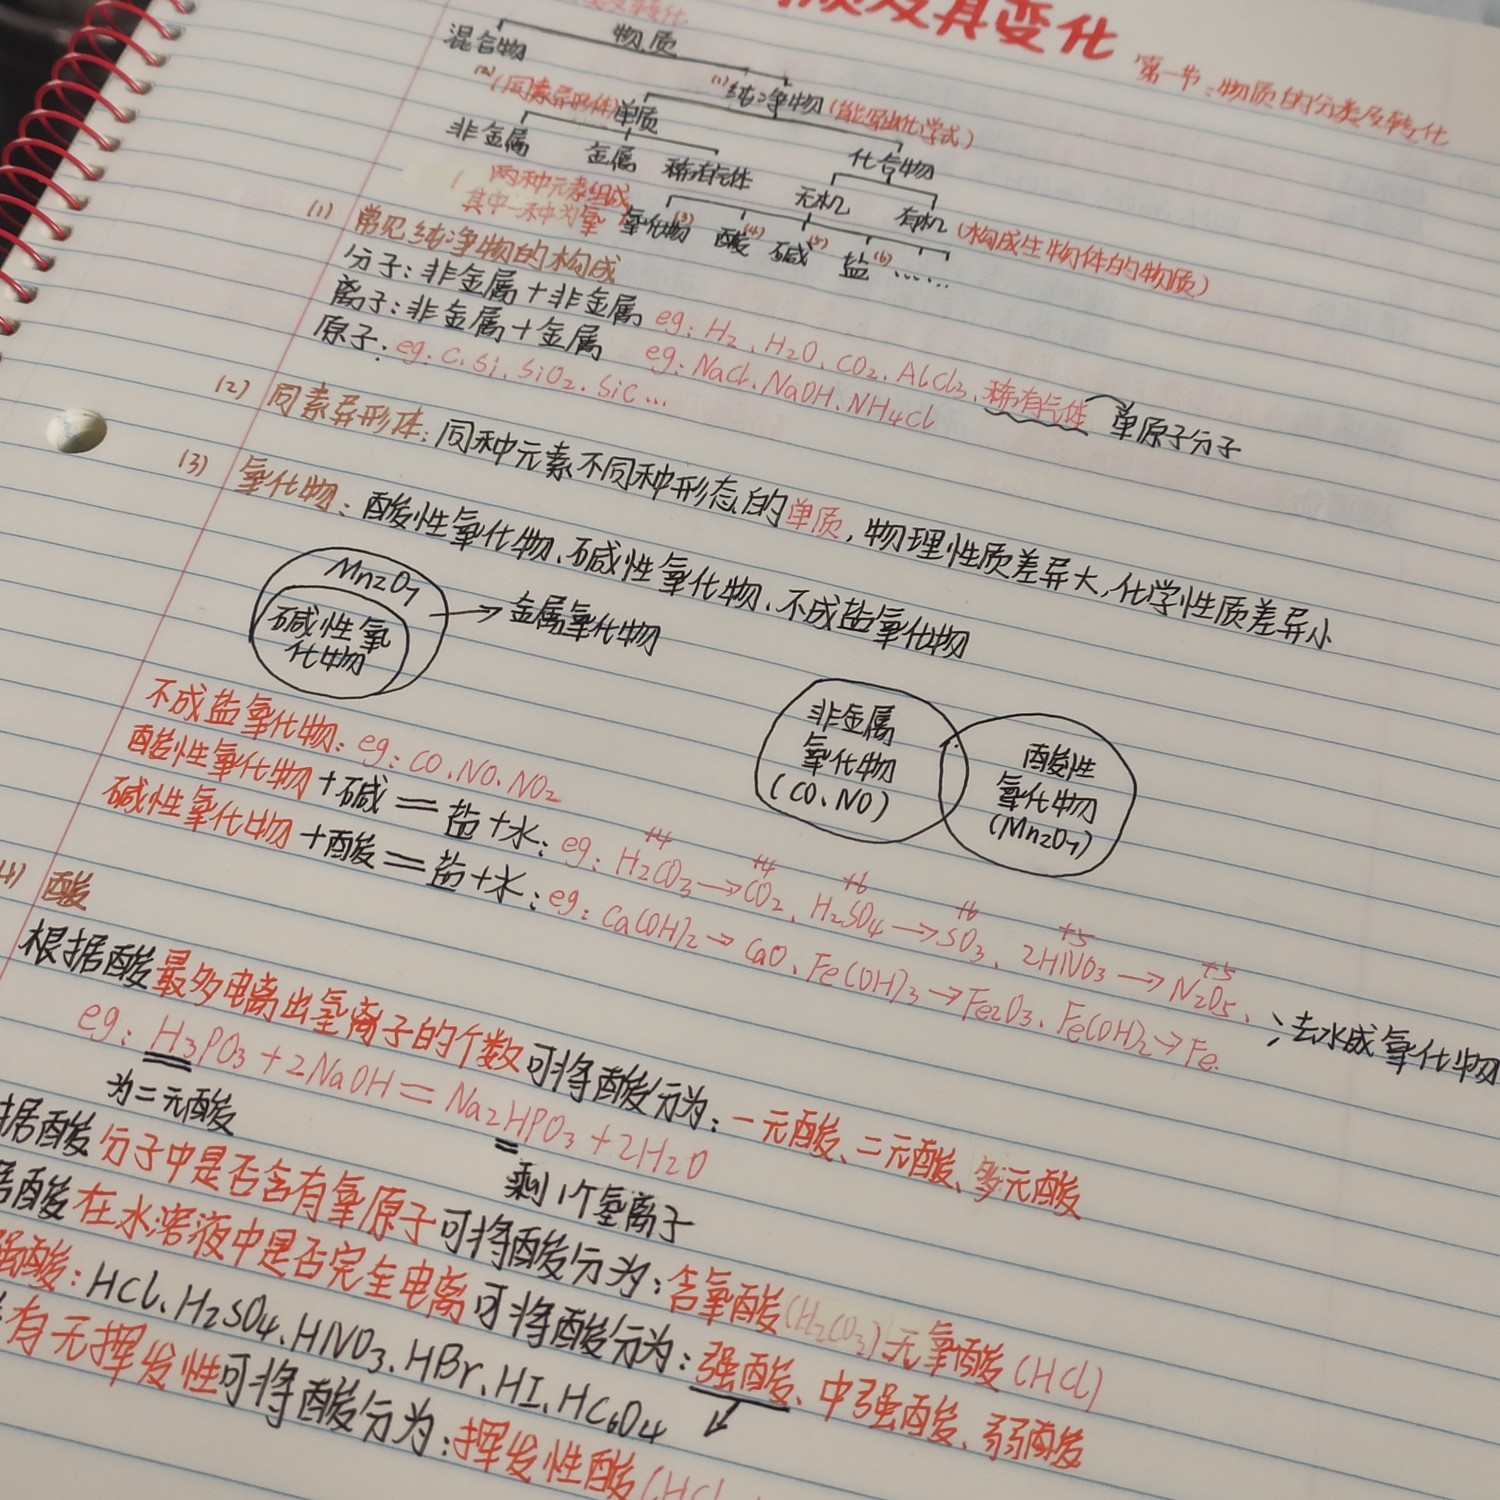 质及其变化
第一节：物质的分类及转化
物质
混合物
(1) 纯净物(能写出化学式)
(2)(同素异形体)单质
化合物
非金属 金属 稀有气体
无机 有机(构成生物体的物质)
(两种元素组成
其中一种为氧
氧化物(3) 酸(4) 碱(5) 盐(6) ……
(1) 常见纯净物的构成
分子：非金属+非金属 eg：H₂、H₂O、CO₂、AlCl₃、稀有气体 单原子分子
离子：非金属+金属 eg：NaCl、NaOH、NH₄Cl
原子：eg：C、Si、SiO₂、SiC…
(2) 同素异形体：同种元素不同种形态的单质，物理性质差异大，化学性质差异小
(3) 氧化物：酸性氧化物、碱性氧化物、不成盐氧化物
Mn₂O₇
碱性氧
化物
→金属氧化物
非金属
氧化物
(CO、NO)
酸性
氧化物
(Mn₂O₇)
不成盐氧化物：eg：CO、NO、NO₂
酸性氧化物+碱＝盐+水：eg：H₂CO₃→CO₂、H₂SO₄→SO₃、2HNO₃→N₂O₅、
+4 +4 +6 +6 +5 +5
碱性氧化物+酸＝盐+水：eg：Ca(OH)₂→CaO、Fe(OH)₃→Fe₂O₃、Fe(OH)₂→Fe
；去水成氧化物
(4) 酸
根据酸最多电离出氢离子的个数可将酸分为：一元酸、二元酸、多元酸
eg：H₃PO₃+2NaOH＝Na₂HPO₃+2H₂O
为二元酸
剩1个氢离子
据酸分子中是否含有氧原子可将酸分为：含氧酸(H₂CO₃)无氧酸(HCl)
酸在水溶液中是否完全电离可将酸分为：强酸、中强酸、弱酸
强酸：HCl、H₂SO₄、HNO₃、HBr、HI、HC₆O₄
有无挥发性可将酸分为：挥发性酸(HCl